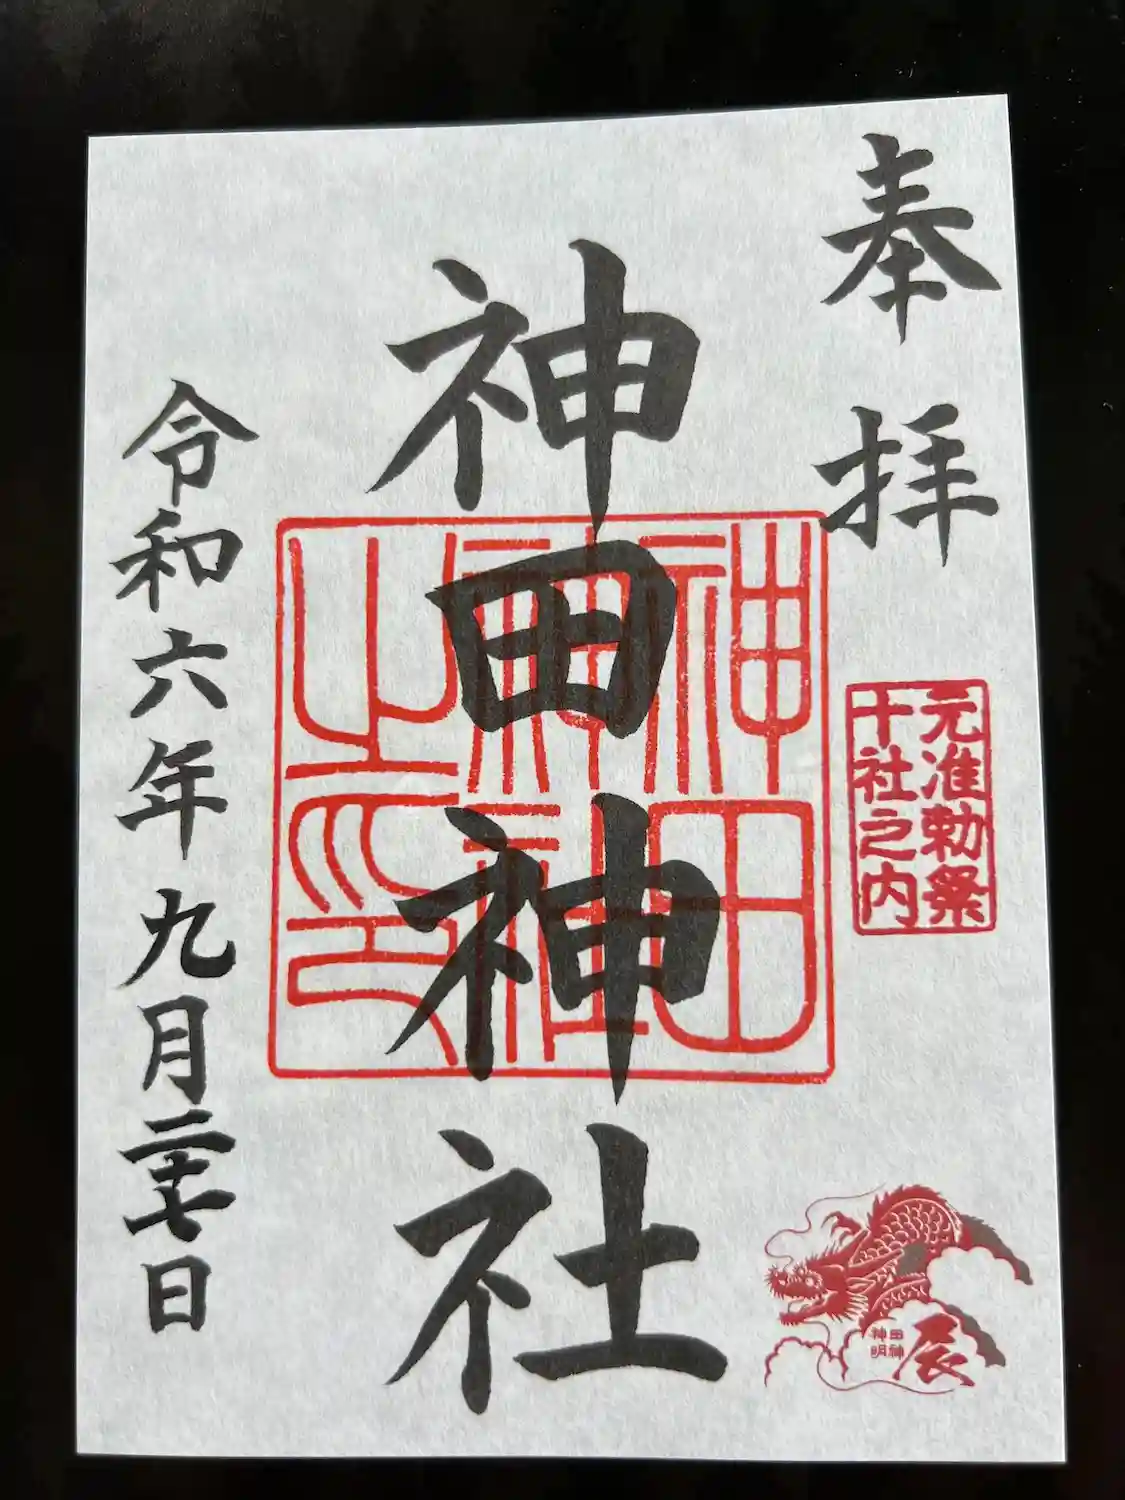 奉拝
元准勅祭
十社之内
神田神社
神田
神社
之印
令和六年九月二十七日
辰
神田
明神